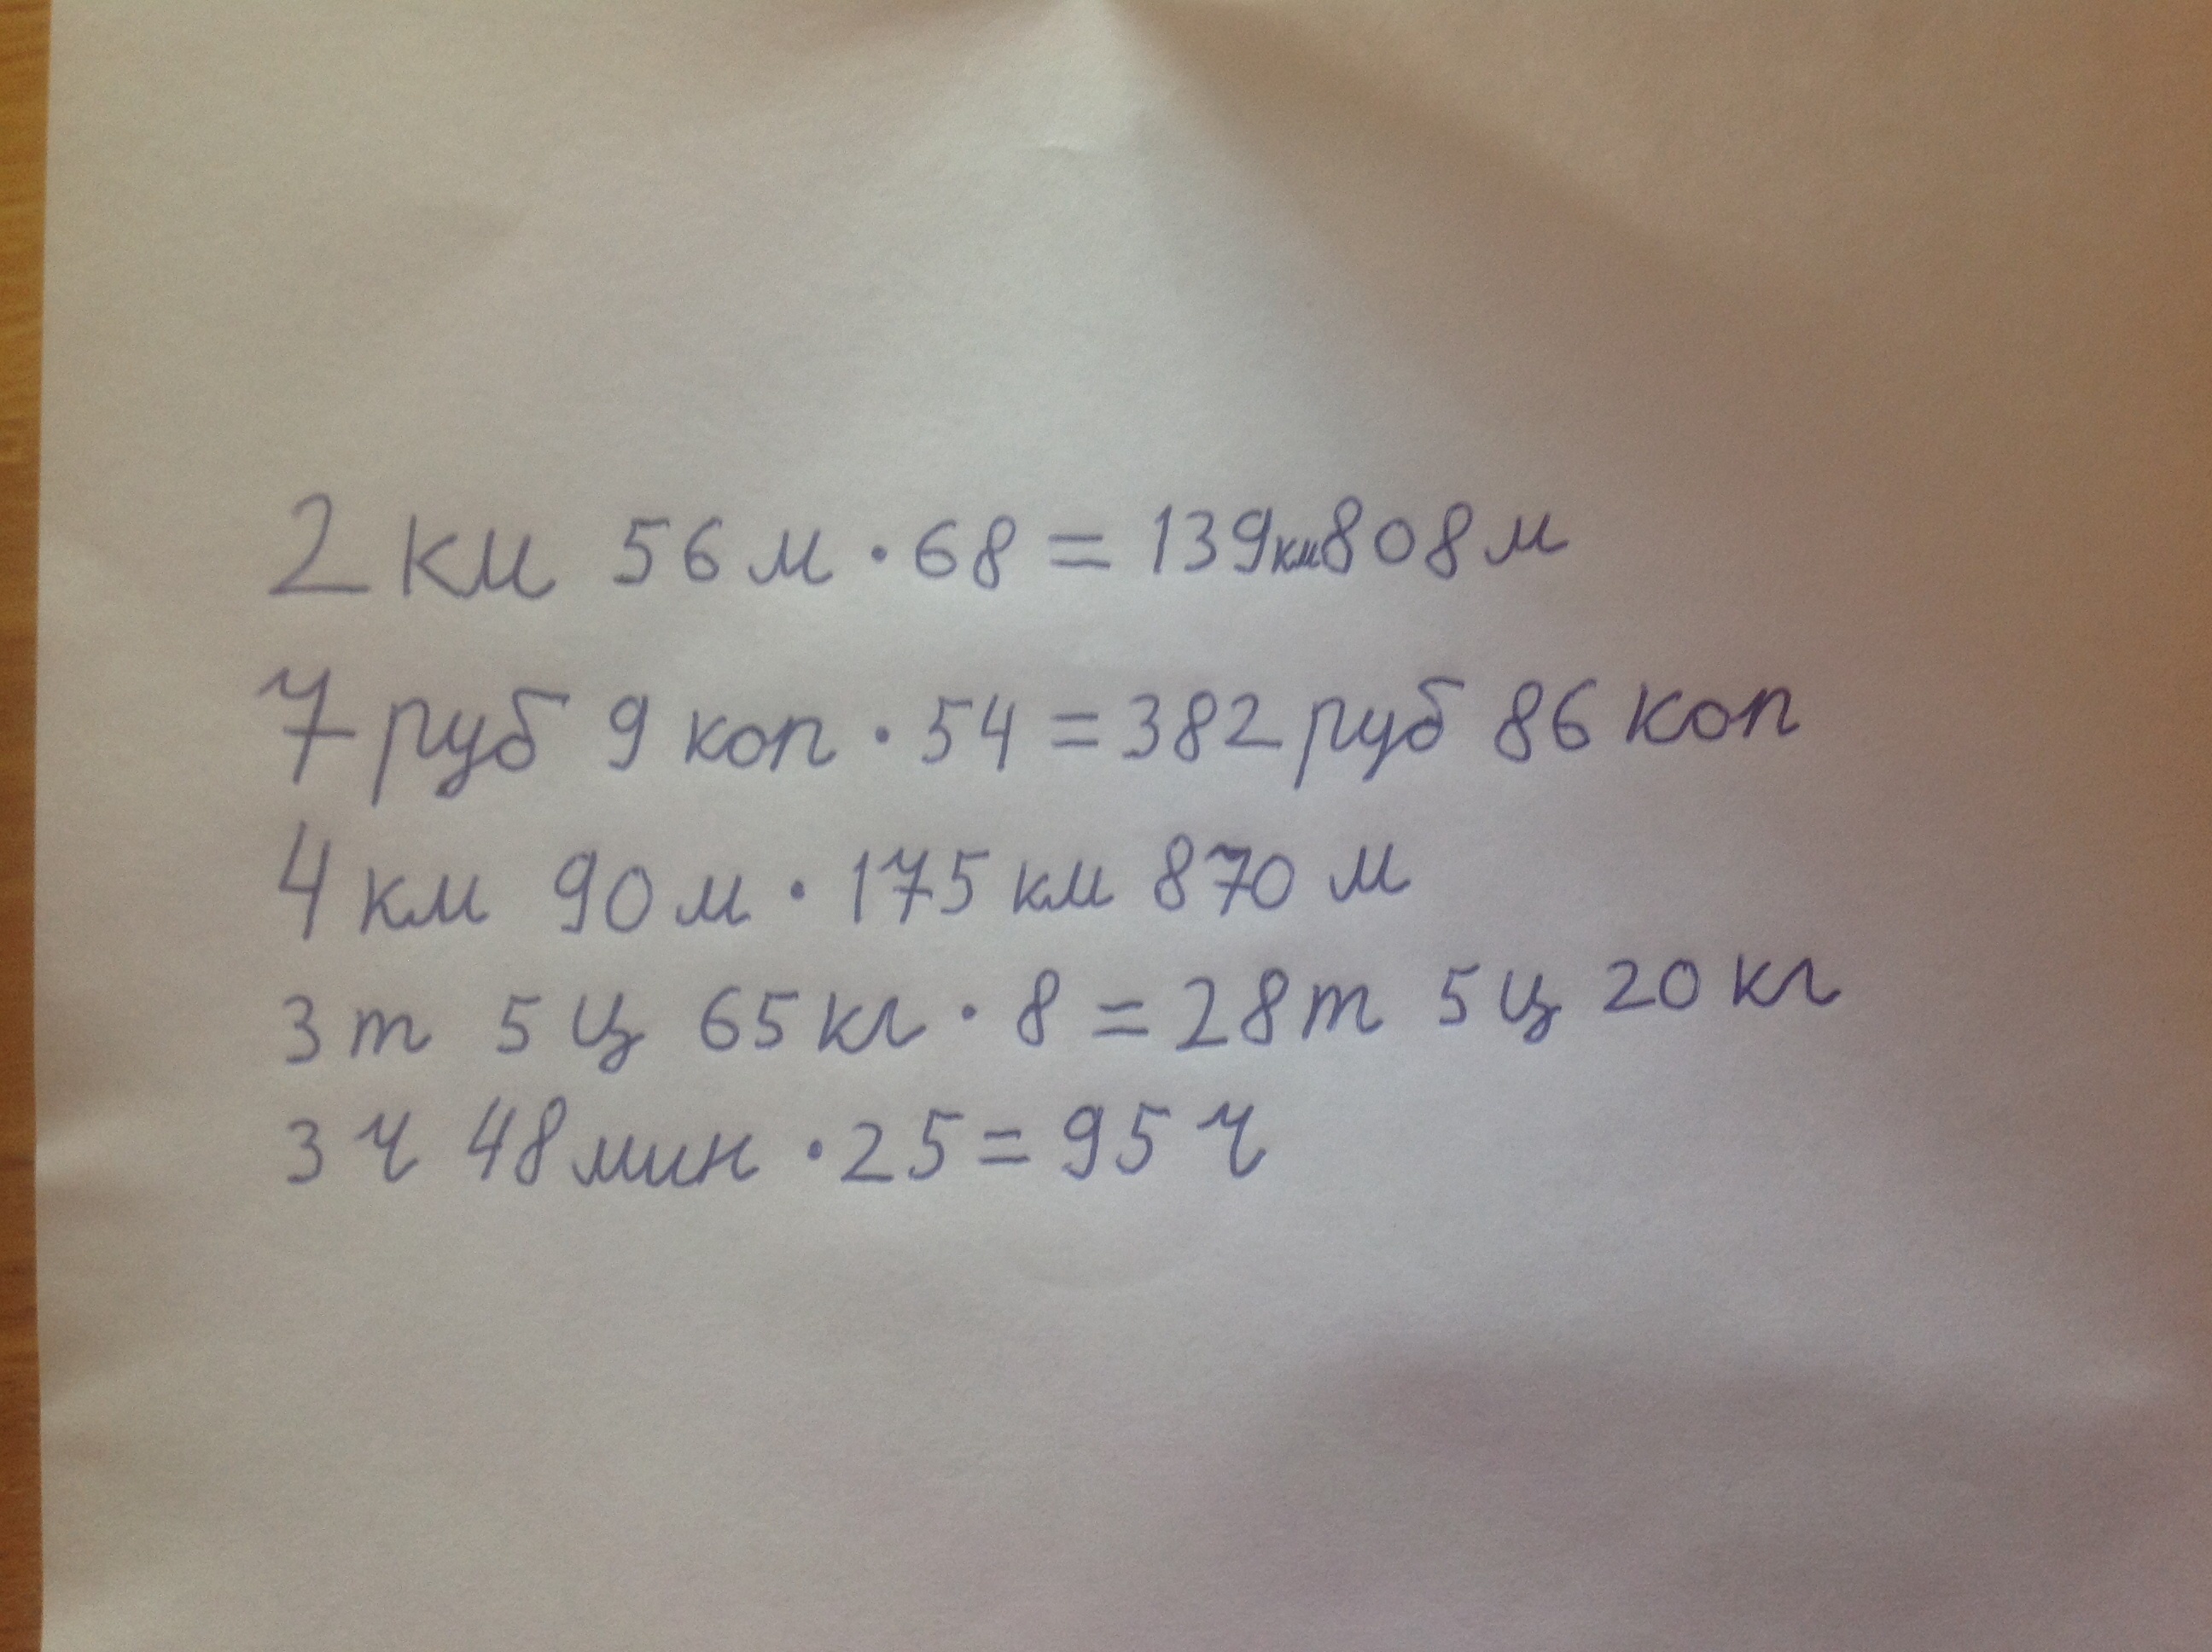 2 км 56 м · 68 = 139км808м
7 руб 9 коп · 54 = 382 руб 86 коп
4 км 90 м · 175 км 870 м
3 т 5 ц 65 кг · 8 = 28 т 5 ц 20 кг
3 ч 48 мин · 25 = 95 ч